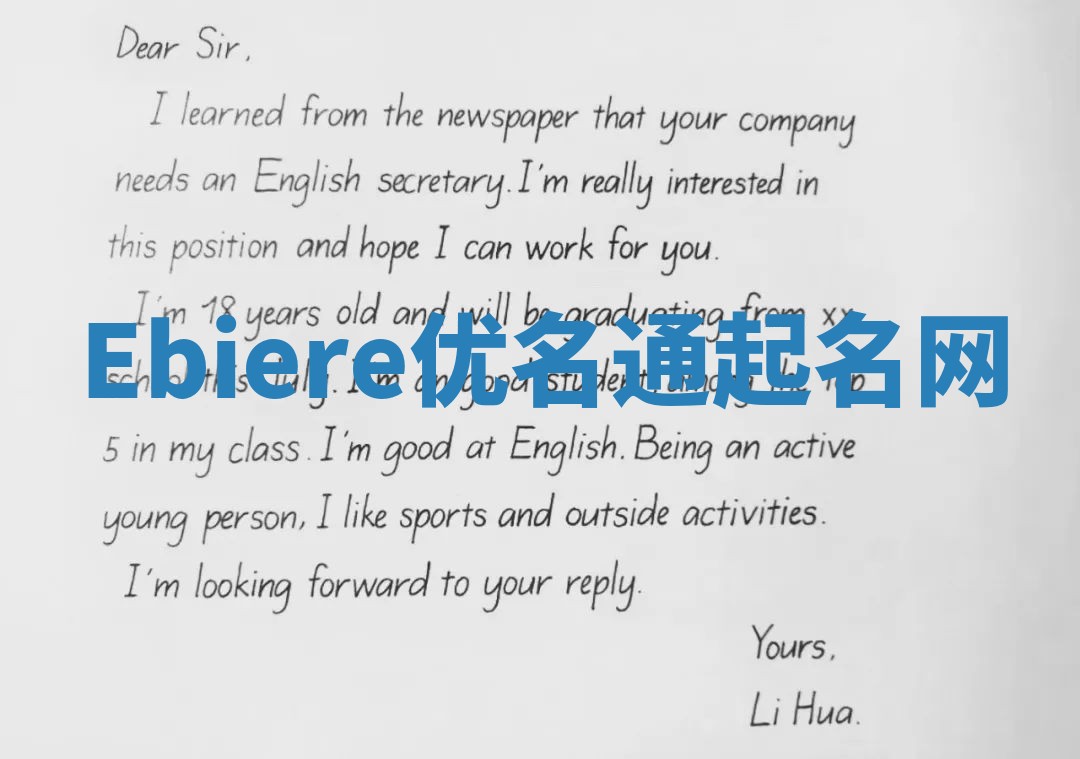 Dear Sir,
I learned from the newspaper that your company
needs an English secretary. I'm really interested in
this position and hope I can work for you.
I'm 18 years old and will be graduating from xx
Ebiere优名通起名网
school this July. I'm an good student, among the top
5 in my class. I'm good at English. Being an active
young person, I like sports and outside activities.
I'm looking forward to your reply.
Yours,
Li Hua.